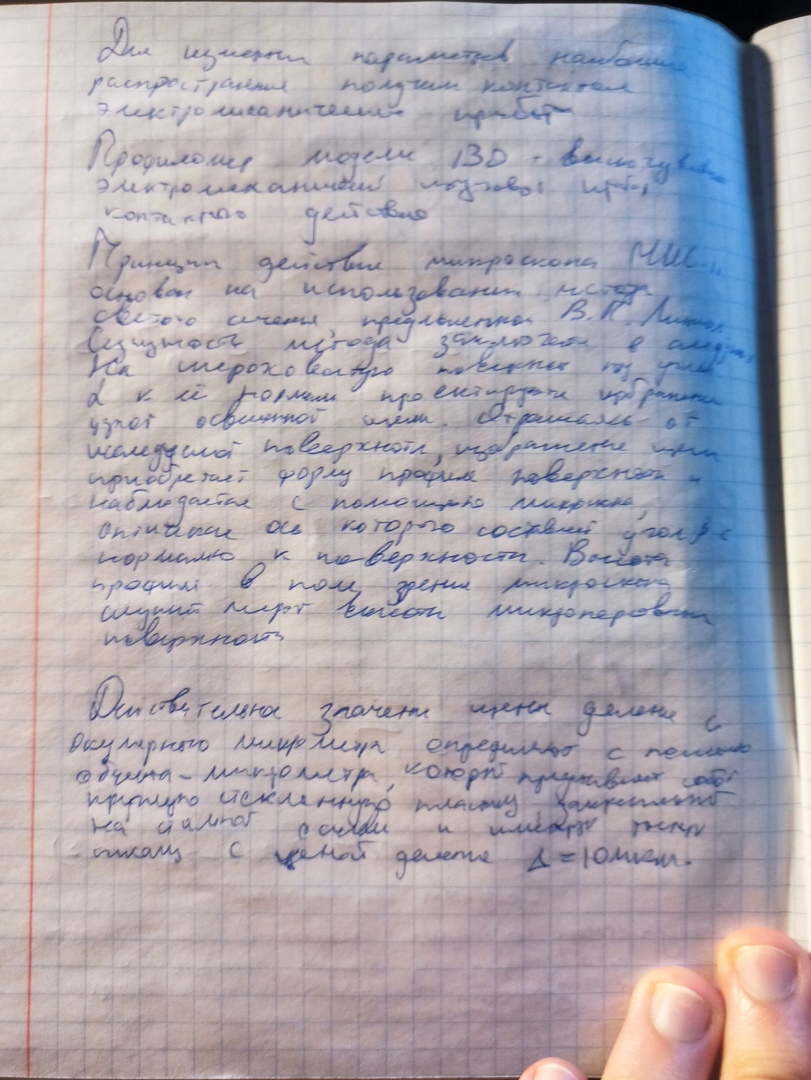 Для измерения параметров наибольшее
распространение получили контактные
электромеханические приборы
Профилометр модели 130 -
электромеханический прибор
контактного действия
Принцип действия микроскопа МИС-11
основан на использовании метода
светового сечения предложенного В.П. Линник
Сущность метода заключается в следующем
На шероховатую поверхность под углом
α к её нормали проектируют изображение
узкой освещенной щели. Отражаясь от
исследуемой поверхности, изображение щели
приобретает форму профиля поверхности и
наблюдается с помощью микроскопа,
оптическая ось которого составляет угол β с
нормалью к поверхности. Высота
профиля в поле зрения микроскопа
служит мерой высоты микронеровностей
поверхности
Действительное значение цены деления
окулярного микрометра определяют с помощью
объекта-микрометра, который представляет собой
стеклянную пластину
на и имеющую
шкалу с ценой деления Δ = 10мкм.